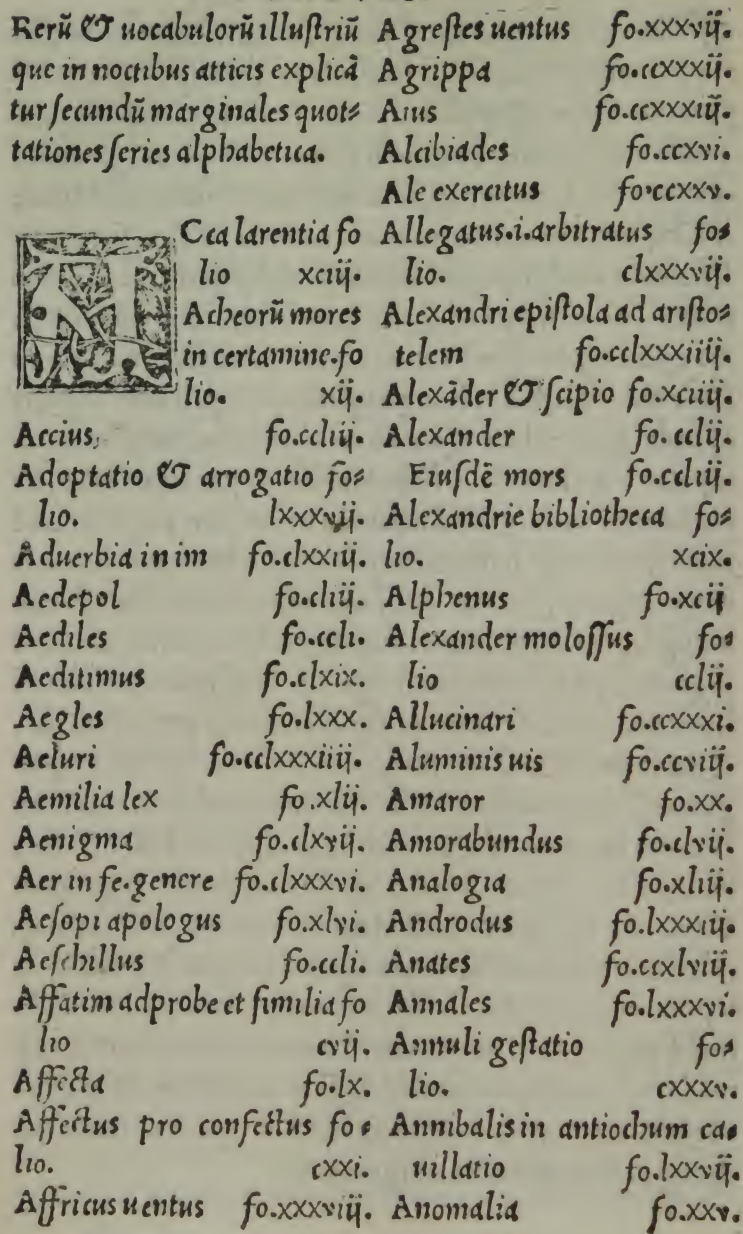 Rerū & uocabulorū illuſtriū
que in noctibus atticis explicā
tur ſecundū marginales quot⸗
tationes ſeries alphabetica.
ACca larentia fo
lio xciij.
Acheorū mores
in certamine.fo
lio. xij.
Accius, fo.ccliij.
Adoptatio & arrogatio fo⸗
lio. lxxxvij.
Aduerbia in im fo.clxxiij.
Aedepol fo.cliij.
Aediles fo.ccli.
Aeditimus fo.clxix.
Aegles fo.lxxx.
Aeluri fo.cclxxxiiij.
Aemilia lex fo.xlij.
Aenigma fo.clxvij.
Aer in fe.genere fo.clxxxvi.
Aeſopi apologus fo.xlvi.
Aeſchillus fo.ccli.
Affatim adprobe et ſimilia fo
lio cvij.
Affecta fo.lx.
Affectus pro confectus fo⸗
lio. cxxi.
Affricus uentus fo.xxxviij.
Agreſtes uentus fo.xxxvij.
Agrippa fo.ccxxxij.
Aius fo.ccxxxiij.
Alcibiades fo.ccxvi.
Ale exercitus fo.ccxxv.
Allegatus.i.arbitratus fo⸗
lio. clxxxvij.
Alexandri epiſtola ad ariſto⸗
telem fo.cclxxxiiij.
Alexāder & ſcipio fo.xciiij.
Alexander fo.cclij.
Eiuſdē mors fo.ccliij.
Alexandrie bibliotheca fo⸗
lio. xcix.
Alphenus fo.xcij
Alexander moloſſus fo⸗
lio cclij.
Allucinari fo.ccxxxi.
Aluminis uis fo.ccviij.
Amaror fo.xx.
Amorabundus fo.clvij.
Analogia fo.xliij.
Androdus fo.lxxxiij.
Anates fo.ccxlviij.
Annales fo.lxxxvi.
Annuli geſtatio fo⸗
lio. cxxxv.
Annibalis in antiochum ca⸗
uillatio fo.lxxvij.
Anomalia fo.xxv.